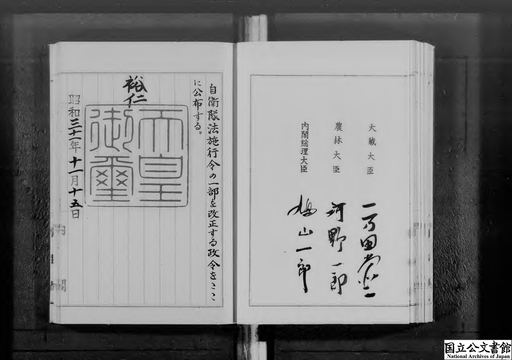 大蔵大臣
一万田尚登
農林大臣
河野一郎
内閣総理大臣
鳩山一郎
自衛隊法施行令の一部を改正する政令をここ
に公布する。
裕仁
天皇
御璽
昭和三十一年十一月十五日
内閣
国立公文書館
National Archives of Japan